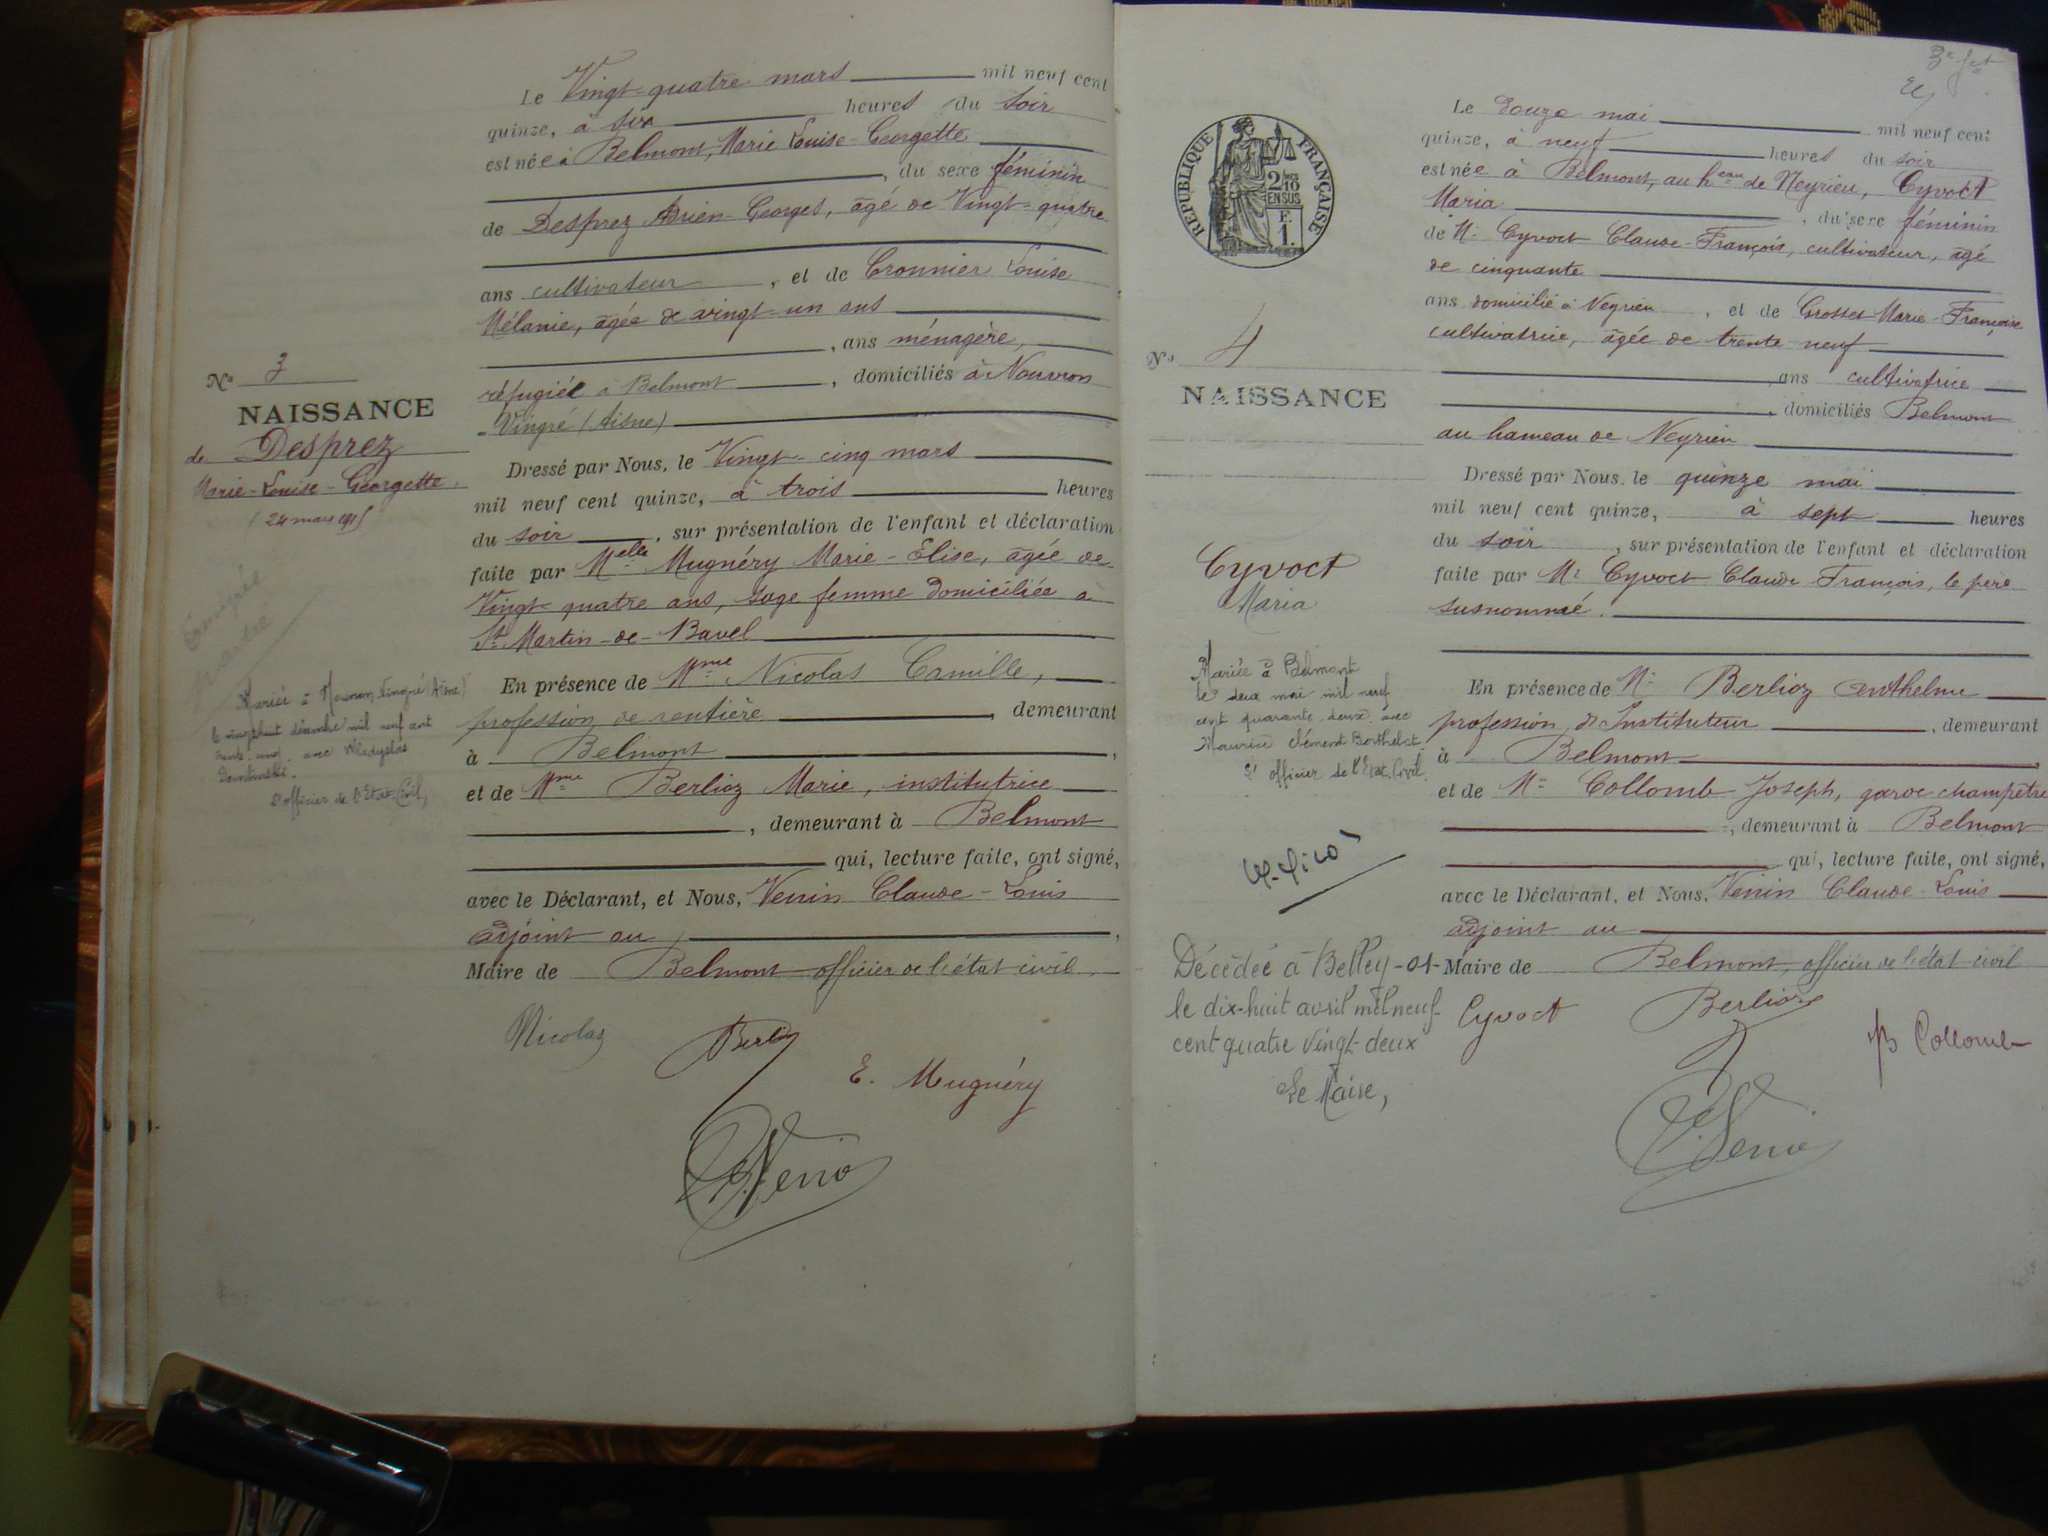 Le Vingt-quatre mars mil neuf cent
quinze, à six heures du soir
est née à Belmont, Marie Louise-Georgette
, du sexe féminin
de Desprez Adrien-Georges, âgé de Vingt-quatre
ans cultivateur, et de Cronnier Louise
Mélanie, âgée de vingt-un ans
, ans ménagère,
réfugiée à Belmont, domiciliés à Nouvron
-Vingré (Aisne)
Dressé par Nous, le Vingt-cinq mars
mil neuf cent quinze, à trois heures
du soir, sur présentation de l'enfant et déclaration
faite par Melle Mugnéry Marie-Elise, âgée de
Vingt-quatre ans, sage femme domiciliée à
St Martin-de-Bavel
En présence de Mme Nicolas Camille,
profession de rentière, demeurant
à Belmont,
et de Mme Berlioz Marie, institutrice
, demeurant à Belmont
qui, lecture faite, ont signé,
avec le Déclarant, et Nous, Venin Claude-Louis
adjoint au,
Maire de Belmont officier de l'état civil,
Nicolas
Berlioz
E. Mugnéry
Venin
No 3
NAISSANCE
de Desprez
Marie-Louise-Georgette
24 mars 1915
Mariée à Nouvron Vingré (Aisne)
le vingt huit décembre mil neuf cent
trente avec Wladyslas
L'officier de l'Etat-Civil,
3e fet
Le douze mai mil neuf cent
quinze, à neuf heures du soir
est née à Belmont, au heau de Neyrieu, Cyvoct
Maria, du sexe féminin
de Mr Cyvoct Claude-François, cultivateur, âgé
de cinquante
ans domicilié à Neyrieu, et de Grosset Marie-Françoise
cultivatrice, âgée de trente neuf
, ans cultivatrice
, domiciliés Belmont
au hameau de Neyrieu
Dressé par Nous, le quinze mai
mil neuf cent quinze, à sept heures
du soir, sur présentation de l'enfant et déclaration
faite par Mr Cyvoct Claude-François, le père
susnommé.
En présence de Mr Berlioz Anthelme
profession d'Instituteur, demeurant
à Belmont,
et de Mr Collomb Joseph, garde-champêtre
, demeurant à Belmont
qui, lecture faite, ont signé,
avec le Déclarant, et Nous, Venin Claude-Louis
adjoint au
Maire de Belmont, officier de l'état civil
Cyvoct
Berlioz
Collomb
Venin
RÉPUBLIQUE FRANÇAISE
2/10
EN SUS
F.
1.
No 4
NAISSANCE
Cyvoct
Maria
Mariée à Belmont
le deux mai mil neuf
cent quarante deux avec
Maurice Clément Berthelet
L'officier de l'Etat-Civil.
Décédée à Belley-01-
le dix-huit avril mil neuf-
cent quatre vingt-deux
Le Maire,